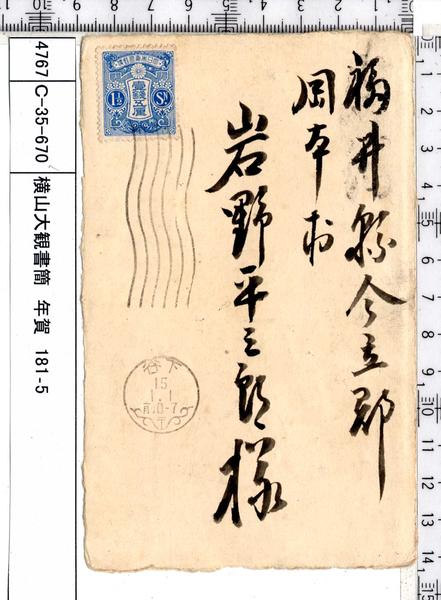 4767 C-35-670 横山大観書簡 年賀 181-5
福井縣今立郡
岡本村
岩野平三郎様
壹銭五厘
1½ Sn
下谷
15
1.1
前0-7